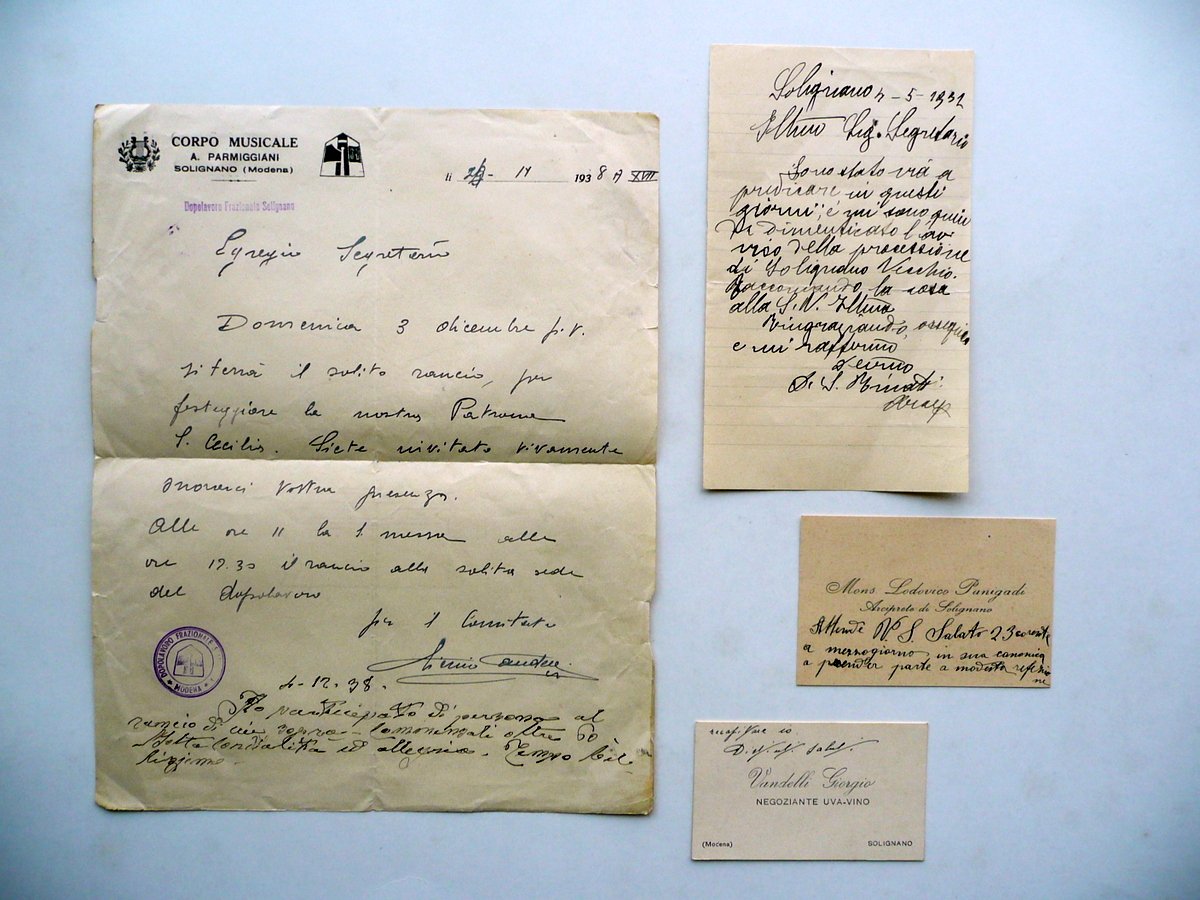 CORPO MUSICALE
A. PARMIGGIANI
SOLIGNANO (Modena)
li 11 1938 A XVII
Dopolavoro Frazionale Solignano
Egregio Segretario
Domenica 3 dicembre p.v.
si terrà il solito rancio, per
festeggiare la nostra Patrona
S. Cecilia. Siete invitato vivamente
onorarci vostra presenza.
Alle ore 11 la S. messa alle
ore 12.30 il rancio alla solita sede
del dopolavoro
per il Comitato
DOPOLAVORO FRAZIONALE
MODENA
4-12.38.
Ho partecipato di persona al
rancio di cui sopra - commensali oltre 60
Molta cordialità ed allegria. Tempo
Solignano 4-5-1932
Ill.mo Sig. Segretario
Sono stato via a
predicare in questi
giorni; e mi sono quin
di dimenticato l'av
viso della processione
di Solignano Vecchio.
Raccomando la cosa
alla S.V. Ill.ma
Ringraziando, ossequio
e mi raffermo
Dev.mo
Mons. Lodovico Panigadi
Arciprete di Solignano
Attende V. S. Sabato 23 corrente
a mezzogiorno in sua canonica
a prender parte a modesta refezio
ne
Vandelli Giorgio
NEGOZIANTE UVA-VINO
(Modena) SOLIGNANO